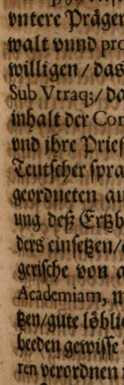 vntere Präger
walt vnnd pro
willigen / das
Sub Vtraq;/ da
inhalt der Con
vnd ihre Prief
Teutscher spra
geordneten au
ung deß Ertzb
ders einsetzen /
gerische von a
Academiam, m
tzen / gute löbli
beeden gewisse
ren verordnen